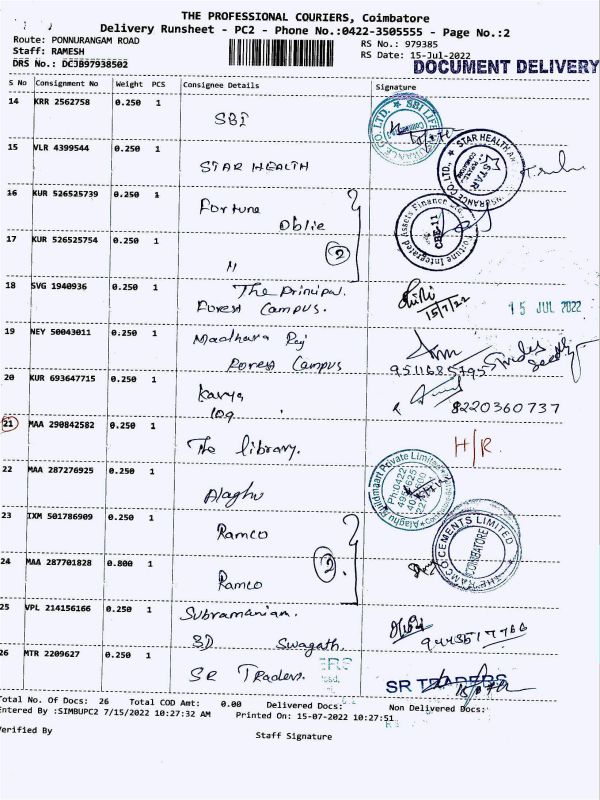 THE PROFESSIONAL COURIERS, Coimbatore
Delivery Runsheet - PC2 - Phone No.:0422-3505555 - Page No.:2
Route: PONNURANGAM ROAD
RS No.: 979385
Staff: RAMESH
RS Date: 15-Jul-2022
DRS No.: DC3B97938502
DOCUMENT DELIVERY
S No Consignment No Weight PCS Consignee Details Signature
14 KRR 2562758 0.250 1 SBI
15 VLR 4399544 0.250 1 STAR HEALTH
16 KUR 526525739 0.250 1 Fortune
Oblie
17 KUR 526525754 0.250 1 "
2
18 SVG 1940936 0.250 1 The Principal.
Forest Campus. 15/7/22 15 JUL 2022
19 NEY 50043011 0.250 1 Madhava Raj
Forest Campus 9511685795
20 KUR 693647715 0.250 1 Kavya
109 8220360737
21 MAA 290842582 0.250 1 The library. H/R
22 MAA 287276925 0.250 1 Alaghu
23 IXM 501786909 0.250 1 Ramco
24 MAA 287701828 0.800 1 Ramco
2
THE RAMCO CEMENTS LIMITED
COIMBATORE
25 VPL 214156166 0.250 1 Subramanian.
SD Swagath.
26 MTR 2209627 0.250 1 SR Traders.
SR TRADERS
Total No. Of Docs: 26 Total COD Amt: 0.00 Delivered Docs: Non Delivered Docs:
Entered By :SIMBUPC2 7/15/2022 10:27:32 AM Printed On: 15-07-2022 10:27:51
Verified By
Staff Signature